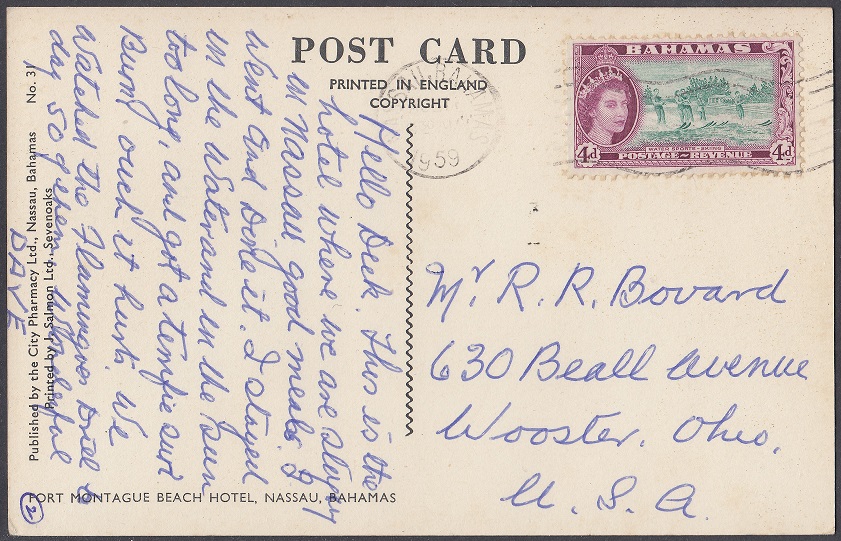 POST CARD
PRINTED IN ENGLAND
COPYRIGHT
BAHAMAS
4d
4d
WATER SPORTS - SKIING
POSTAGE - REVENUE
1959
Hello Dick. This is the
hotel where we are staying
in Nassau good meals. I
went and done it. I stayed
in the water and in the sun
too long, and got a terrific sun
Burn, ouch it hurts. We
Watched the Flamingoes Drill to
day 50 of them. Wonderful
DAVE
Mr R. R. Bovard
630 Beall Avenue
Wooster, Ohio.
U. S. A.
Published by the City Pharmacy Ltd., Nassau, Bahamas No. 31
Printed by J. Salmon Ltd., Sevenoaks
FORT MONTAGUE BEACH HOTEL, NASSAU, BAHAMAS
2